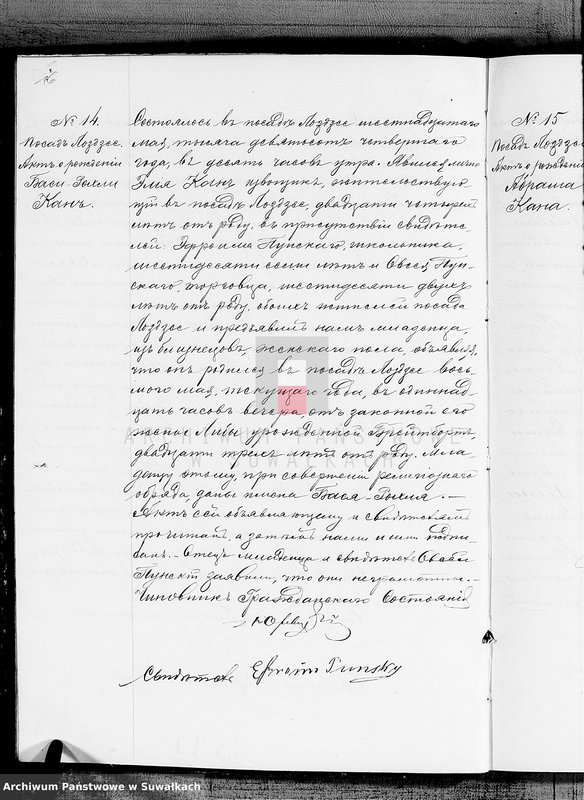 № 14.
Посадъ Лоздзее.
Актъ о рожденіи
Баси-Рохли
Канъ.
Состоялось въ посадѣ Лоздзее шестнадцатаго
мая, тысяча девятьсотъ четвертаго
года, въ десять часовъ утра. Явился лично
Элія Канъ извощикъ, жительствую-
щій въ посадѣ Лоздзее, двадцати четырехъ
лѣтъ отъ роду, въ присутствіи свидѣте-
лей: Эфроима Пунскаго, школьника,
шестидесяти семи лѣтъ и Овсея Пун-
скаго, торговца, шестидесяти двухъ
лѣтъ отъ роду, обоихъ жителей посада
Лоздзее и предъявилъ намъ младенца,
изъ близнецовъ, женскаго пола, объявляя,
что онъ родился въ посадѣ Лоздзее вось-
маго мая, текущаго года, въ одиннад-
цать часовъ вечера, отъ законной его
жены Либы урожденной
двадцати трехъ лѣтъ отъ роду. Мла-
денцу этому, при совершеніи религіознаго
обряда, даны имена Бася-Рохля. —
Актъ сей объявляющему и свидѣтелямъ
прочитанъ, а затѣмъ нами и ими подпи-
санъ. — Отецъ младенца и свидѣтель Овсей
Пунскій заявили, что они неграмотны. —
Чиновникъ Гражданскаго Состоянія
Свидѣтель Efroim Punsky
№ 15
Посадъ Лоздзее
Актъ о рожденіи
Абрама
Кана.
ARCHIWUM PAŃSTWOWE
W SUWAŁKACH
Archiwum Państwowe w Suwałkach